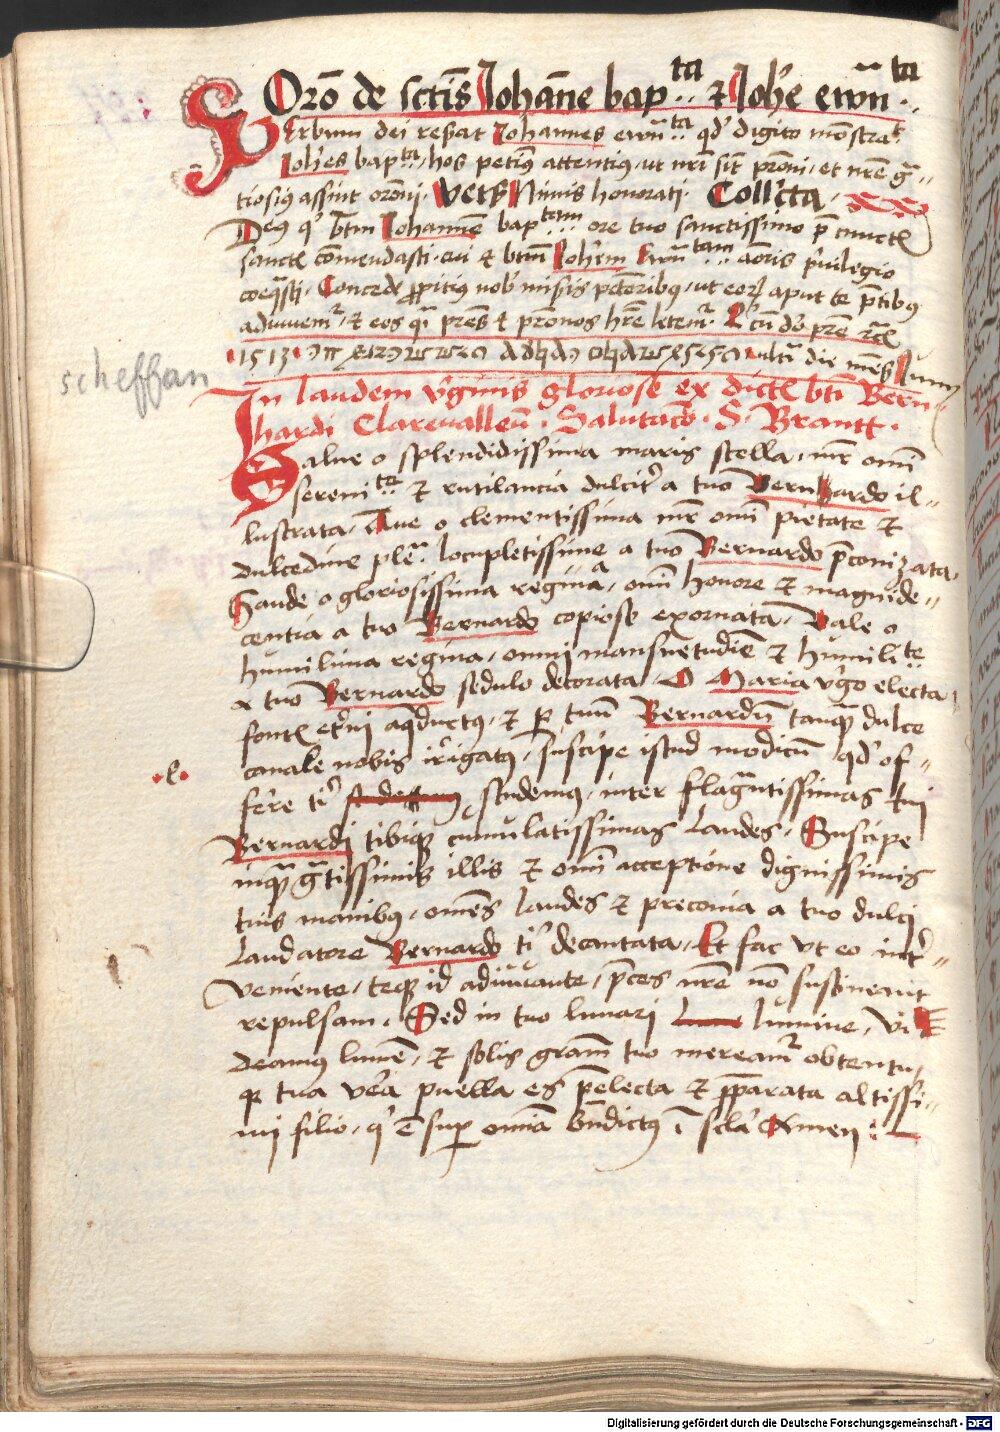 Orõ de sctis Iohãne bap ta et Iohe ewã ta
Verbum dei reserat Iohannes ewã ta qd' digito mõstrat
Ioh'es bap ta / hos petim9 attentius / ut nri sĩt prõni / et nrẽ grã
tiosius assint orõni · Vers Nimis honorati · Coll'cta
Deus q' btm Iohannẽ bap tem ore tuo sanctissimo prẽ cunctis
sanctis cõmendasti · cui et btm Ioh'em Ewã tam amoris p'uilegio
coeq̃sti · Concede propitius nob' misis pctoribus / ut eor aput te prẽtibus
adiuvemr / et eos q̃ preñs et prõnos h're letemr · Qi cũ do prẽ
1513 ultĩ die meñs Iunii
scheffan
In laudem v'ginis gloriose ex dictis bti Bern-
hardi Clarevalleñ · Salutatõ · S · Brantt ·
Salve o splendidissima maris stella / mr omĩ
sereni te et rutilancia dulcit'r a tuo Bernhardo il-
lustrata / Ave o clementissima mr omĩ pietate et
dulcedine plẽ / locupletissime a tuo Bernardo prẽconizata
Gaude o gloriosissima regina / omĩ honore et magnide-
centia a tuo Bernardo copiose exornata / Vale o
humilima regina / omni mansuetudiẽ et humili te
a tuo Bernardo sedulo decorata / O Maria v'go electa
fontis et'ni aq̃ductus / et per tuũ Bernardũ tanq̃ dulce
canale nobis irrigatus / suscipe istud modicũ qd' of-
·l· ferre ti' studemus / inter flagrãtissimas tui
Bernardi tibique cumulatissimas laudes / Suscipe
inq̃ grãtissimis illis et omĩ acceptione dignissimis
tuis manibus / omẽs laudes et preconia a tuo dulci
laudatore Bernardo ti' decantata / Et fac ut eo int'-
veniente / teque id adiuvante / prẽces nrẽ nõ sustineant
repulsam / Sed in tuo lunari lumine / vi
deamus lumẽ / et solis grãm tuo mereamr obtentu
q tua vera puella es prẽelecta et prẽparata altissi-
mi filio / q' ẽ super omĩa bñdictus ĩ scl'a Amen :
Digitalisierung gefördert durch die Deutsche Forschungsgemeinschaft - DFG